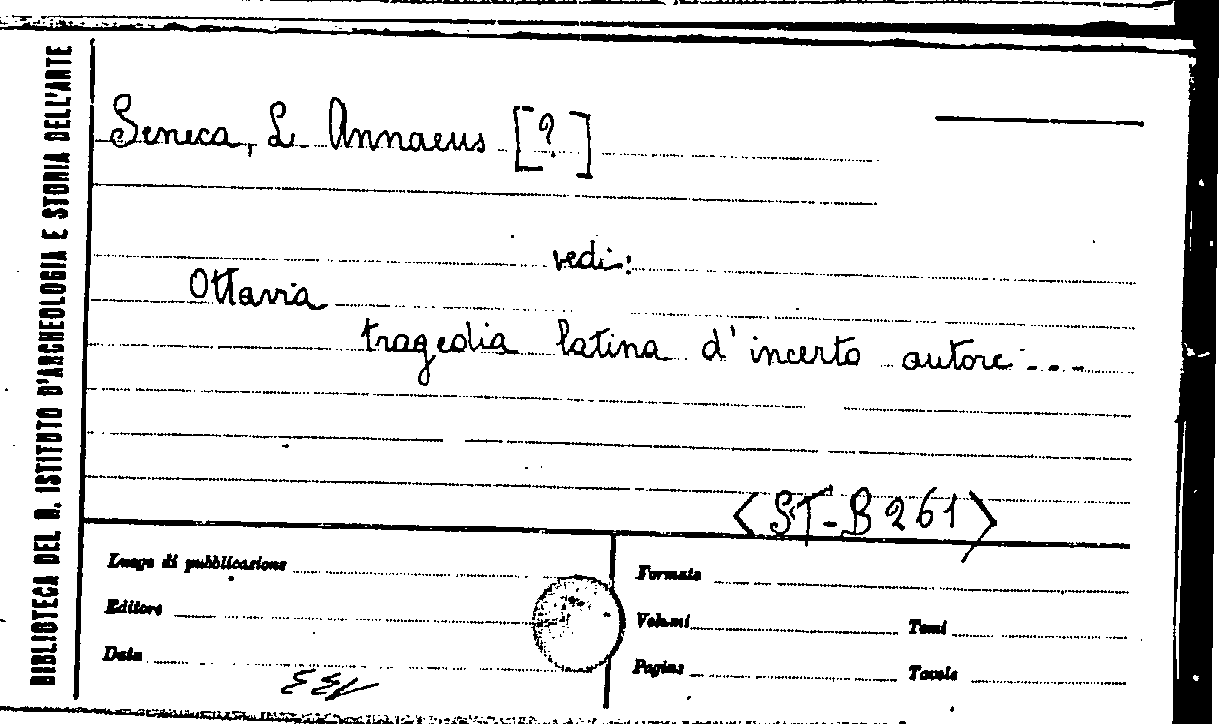 BIBLIOTECA DEL R. ISTITUTO D'ARCHEOLOGIA E STORIA DELL'ARTE
Seneca, L. Annaeus [?]
vedi:
Ottavia
tragedia latina d'incerto autore ---
<ST-B261>
Luogo di pubblicazione
Editore
Data
Formato
Volumi Tomi
Pagine Tavole